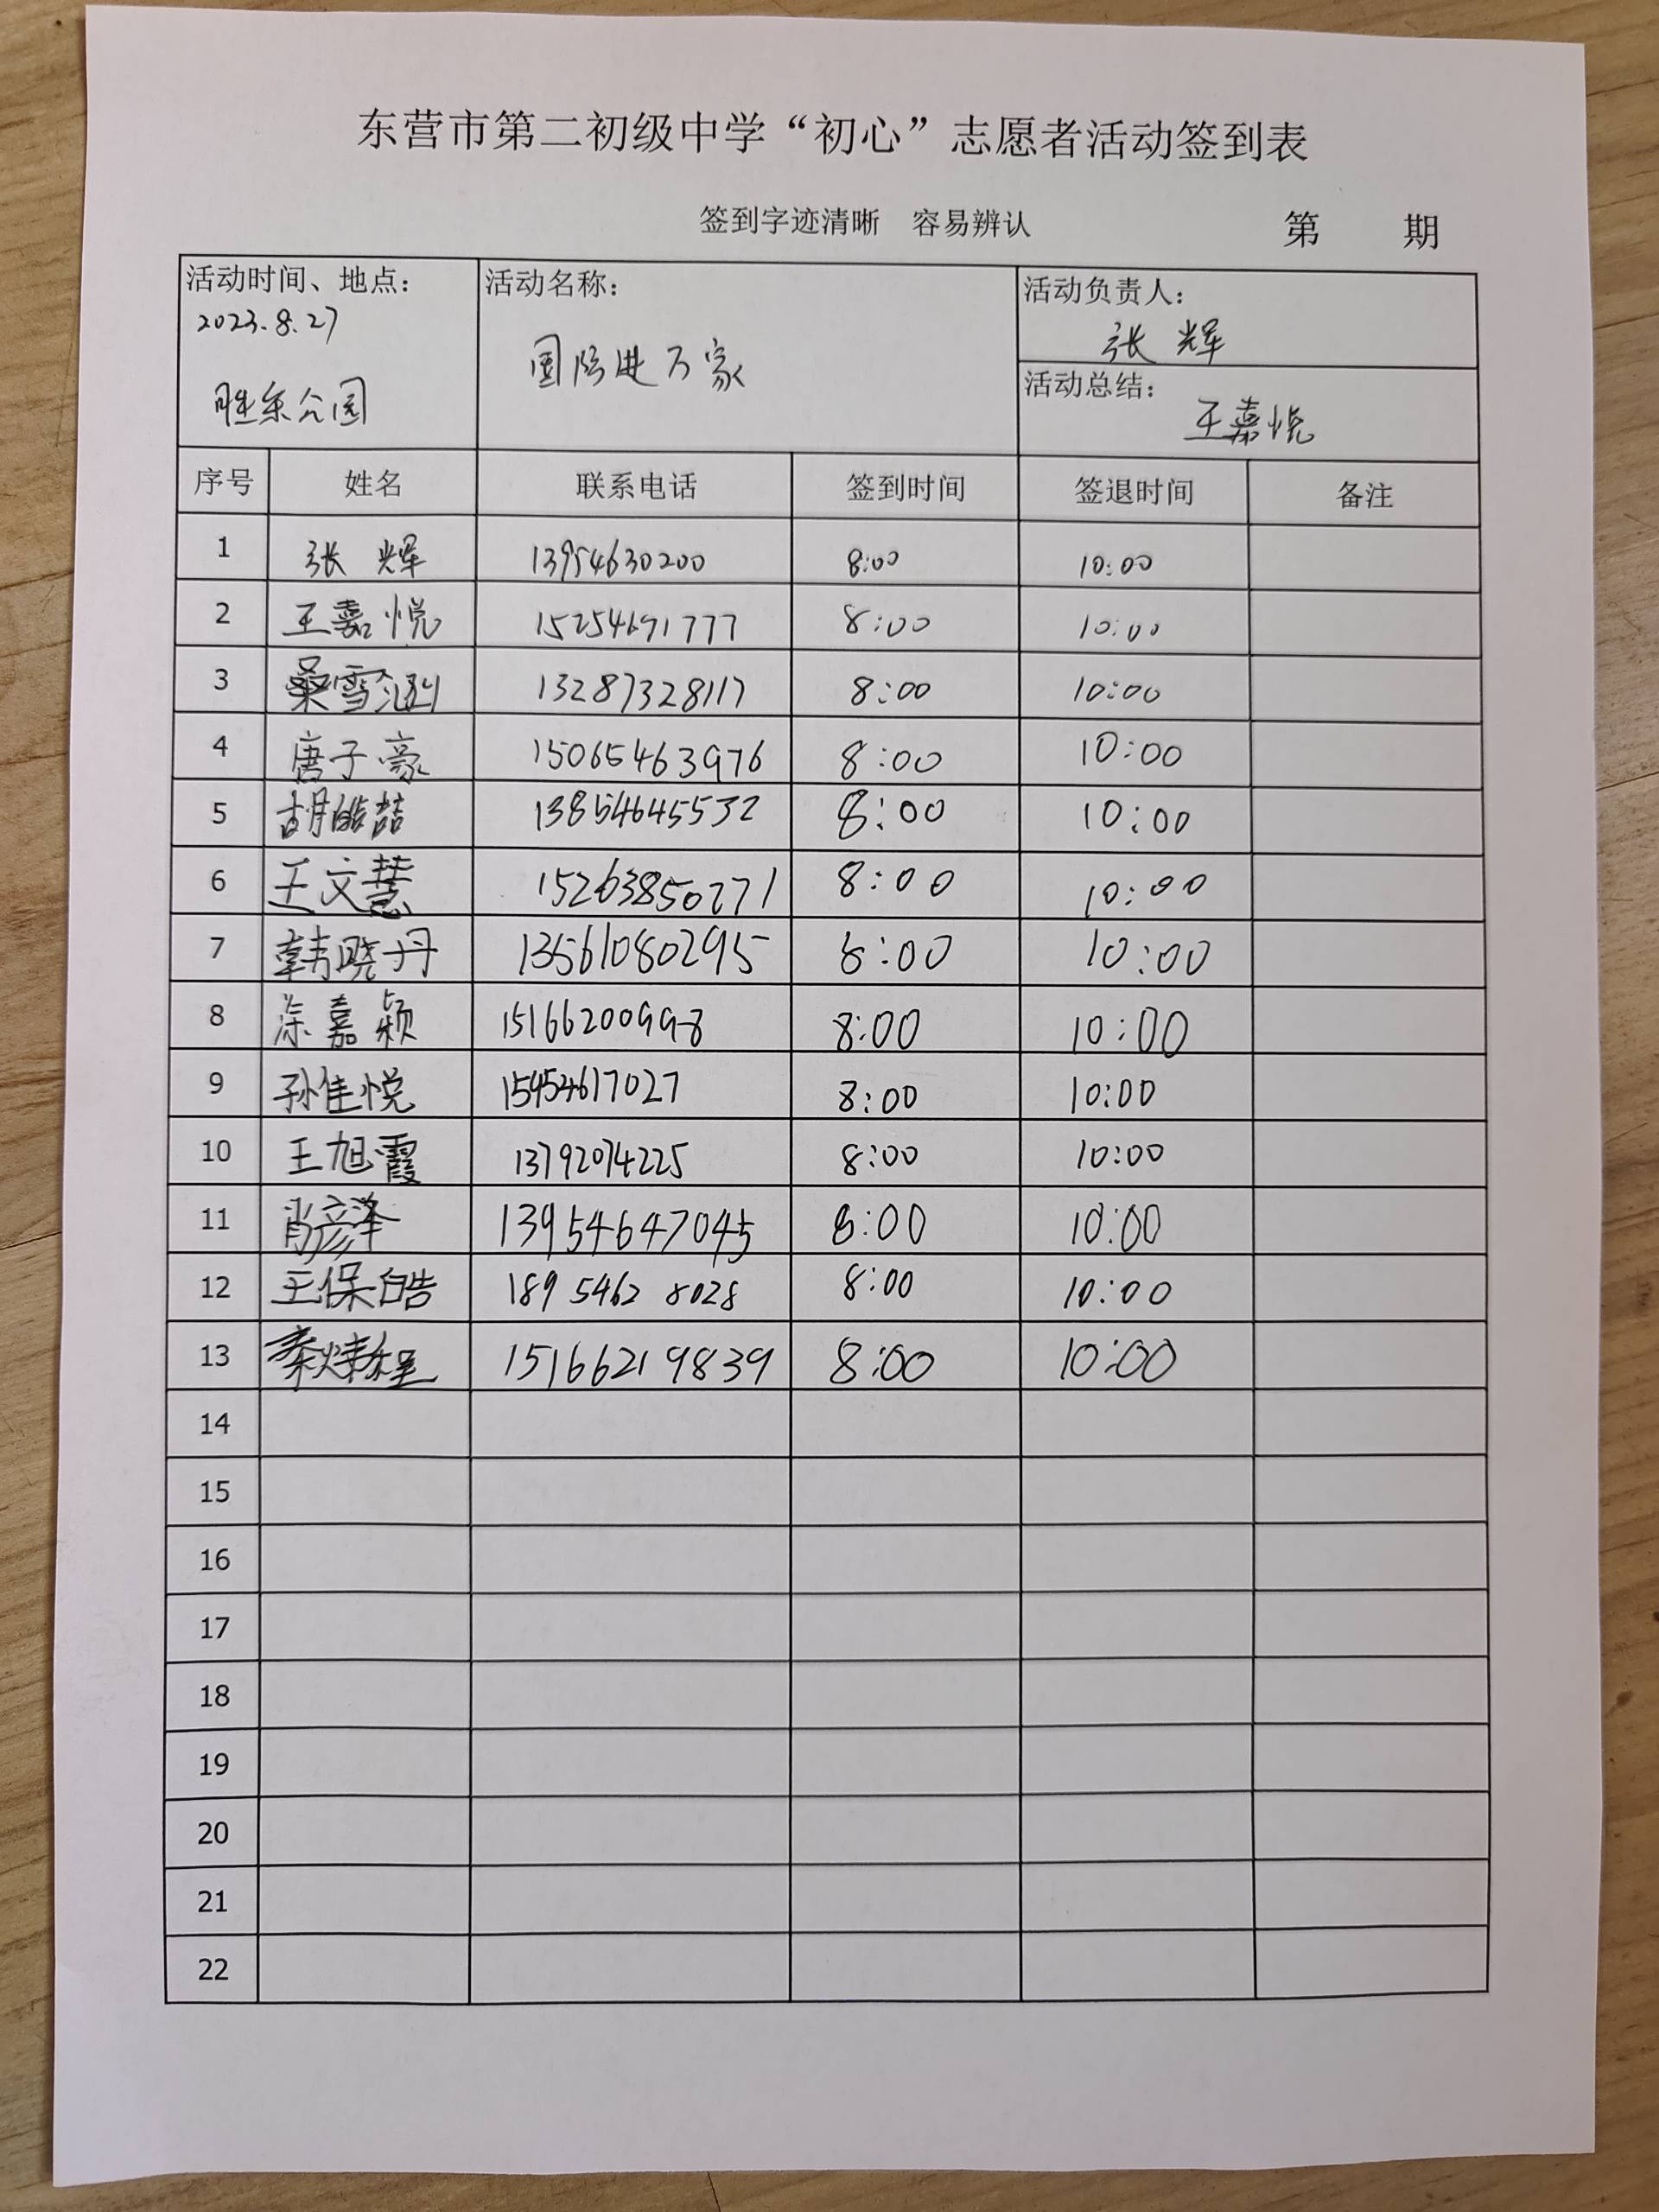 东营市第二初级中学“初心”志愿者活动签到表
签到字迹清晰 容易辨认 第 期
活动时间、地点： 活动名称： 活动负责人：
2023.8.27 国际进万家 张辉
胜东公园 活动总结： 王嘉悦
序号 姓名 联系电话 签到时间 签退时间 备注
1 张辉 13954630200 8:00 10:00
2 王嘉悦 15254691777 8:00 10:00
3 桑雪涵 13287328117 8:00 10:00
4 唐子豪 15065463976 8:00 10:00
5 胡皓喆 13854645532 8:00 10:00
6 王文慧 15263850271 8:00 10:00
7 韩晓丹 13561080295 8:00 10:00
8 涂嘉颖 15166200998 8:00 10:00
9 孙佳悦 15454617027 8:00 10:00
10 王旭霞 13792074225 8:00 10:00
11 肖彦泽 13954647045 8:00 10:00
12 王保皓 189 5462 8028 8:00 10:00
13 秦炜程 15166219839 8:00 10:00
14
15
16
17
18
19
20
21
22